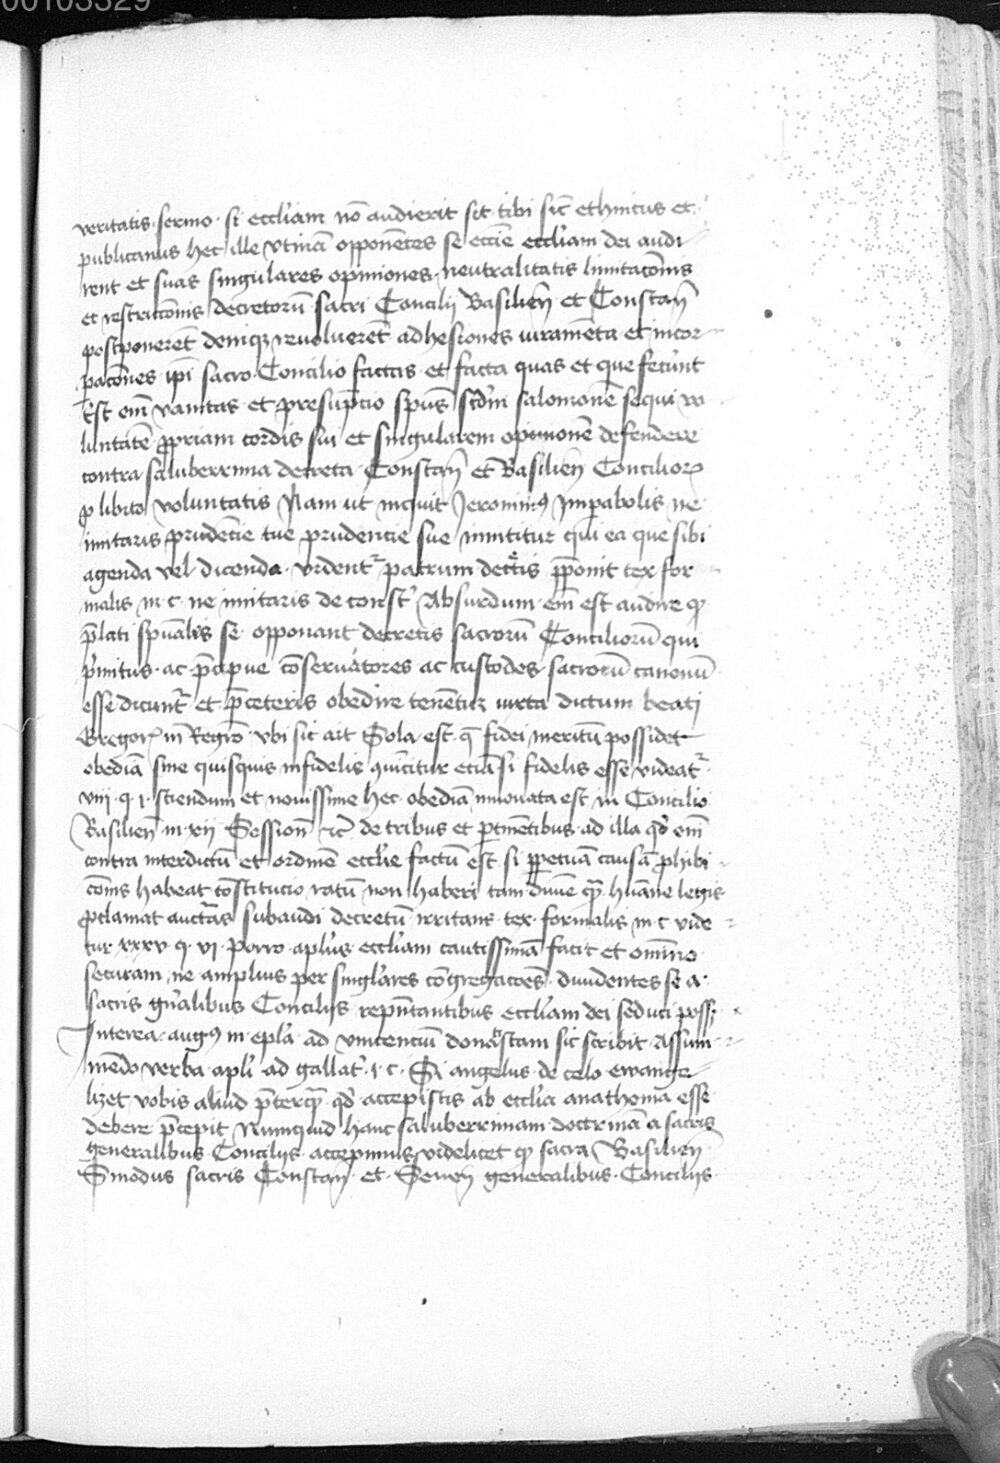 00103329
veritatis · sermo · si eccl'iam nō audierit sit tibi sic̄ ethnicus et ·
publicanus hec ille Vtinā opponētes se ecc̄ie eccl'iam dei audi
rent et suas singulares opiniones · neutralitatis limitacōnis
et restriccōnis decretorū sacri Concilij Basilien̄ et Constan̄
postponerēt deniqz reuoluerēt adhesiones iuramēta et incor
pacōnes ip̄i sacro Concilio factas et facta quas et que fecūnt
Est em̄ vanitas et presūpcio sp̄us scd'm salomonē sequi vo
luntatē ꝓpriam cordis sui et singularem opinionē defendere
contra saluberrima decreta Constan̄ et Basilien̄ Concilioꝝ
ꝓ libito voluntatis Nam ut inquit Jeronimꝰ Imp̄abolis ne
imitaris prudēcie tue prudencie sue innititur qui ea que sibi
agenda vel dicenda · vident᷑ patrum dectis p̄ponit tex for
malis in · c · ne imitaris de const' Absurdum em̄ est audire qꝫ
p̄lati sp̄uales se opponant decretis sacrorū Conciliorū qui
p̄mitus · ac p̄cipue cōseruatores ac custodes sacrorū canonū
esse dicunt᷑ et p̄ceteris obedire tenēt᷑ iuxta dictum beati
Gregorꝰ in Regr̄o vbi sic ait Sola est q̄ fidei meritū possidet
obediā sine quisquis infidelis ꝯuincitur etiā si fidelis esse videat᷑
viij · q · i · sciendum et nouissime hec obediā innouata est in Concilio
Basilien̄ in xij Session̄ tit' de tribus et ptinētibus ad illa qd' em̄
contra interdictū et ordinē eccl'ie factū est si p̄petuā causā ꝓhibi
cōnis habeat cōstitucio ratū non haberi tam diuine qꝫ hūane legis
ꝓclamat auctās subaudi decretū irritans tex formalis in · c vide
tur xxxv q · vi · porro apl'us eccl'iam cautissimā facit et om̄ino
securam ne amplius per singl'ares cōgregacōes diuidentes se a ·
sacris gn̄alibus Concilijs rep̄ntantibus eccl'iam dei seduci possꝫ
Interea · augꝰ in epl'a ad vincenciū donastam sic scribit Assum
mēdo verba apl'i ad gallat' · i · c · Si angelus de celo ewange
lizet vobis aliud p̄terqꝫ qd' accepistis ab eccl'ia anathema esse
debere p̄cepit Numquid hanc saluberrimam doctrinā a sacris
generalibus Concilijs accepimus videlicet qꝫ sacra Basilien̄
Sinodus sacris Constan̄ · et · Senen̄ generalibus Concilijs